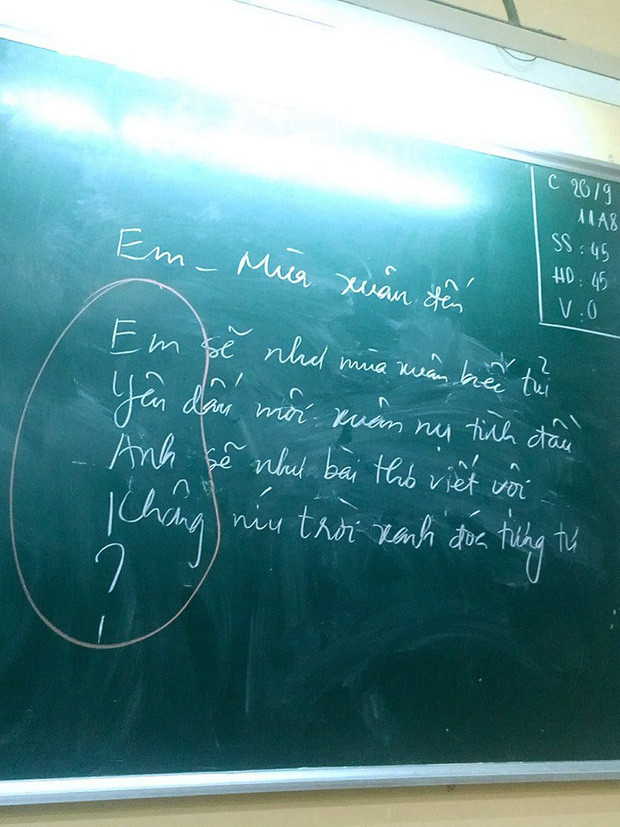 C 20/9
11A8
SS : 45
HD : 45
V : 0
Em - Mùa xuân đến
Em sẽ như mùa xuân biếc tủ
Yên dấu môi xuân nụ tình đầu
Anh sẽ như bài thơ viết vôi
Không níu trời xanh đóa tương tư
?